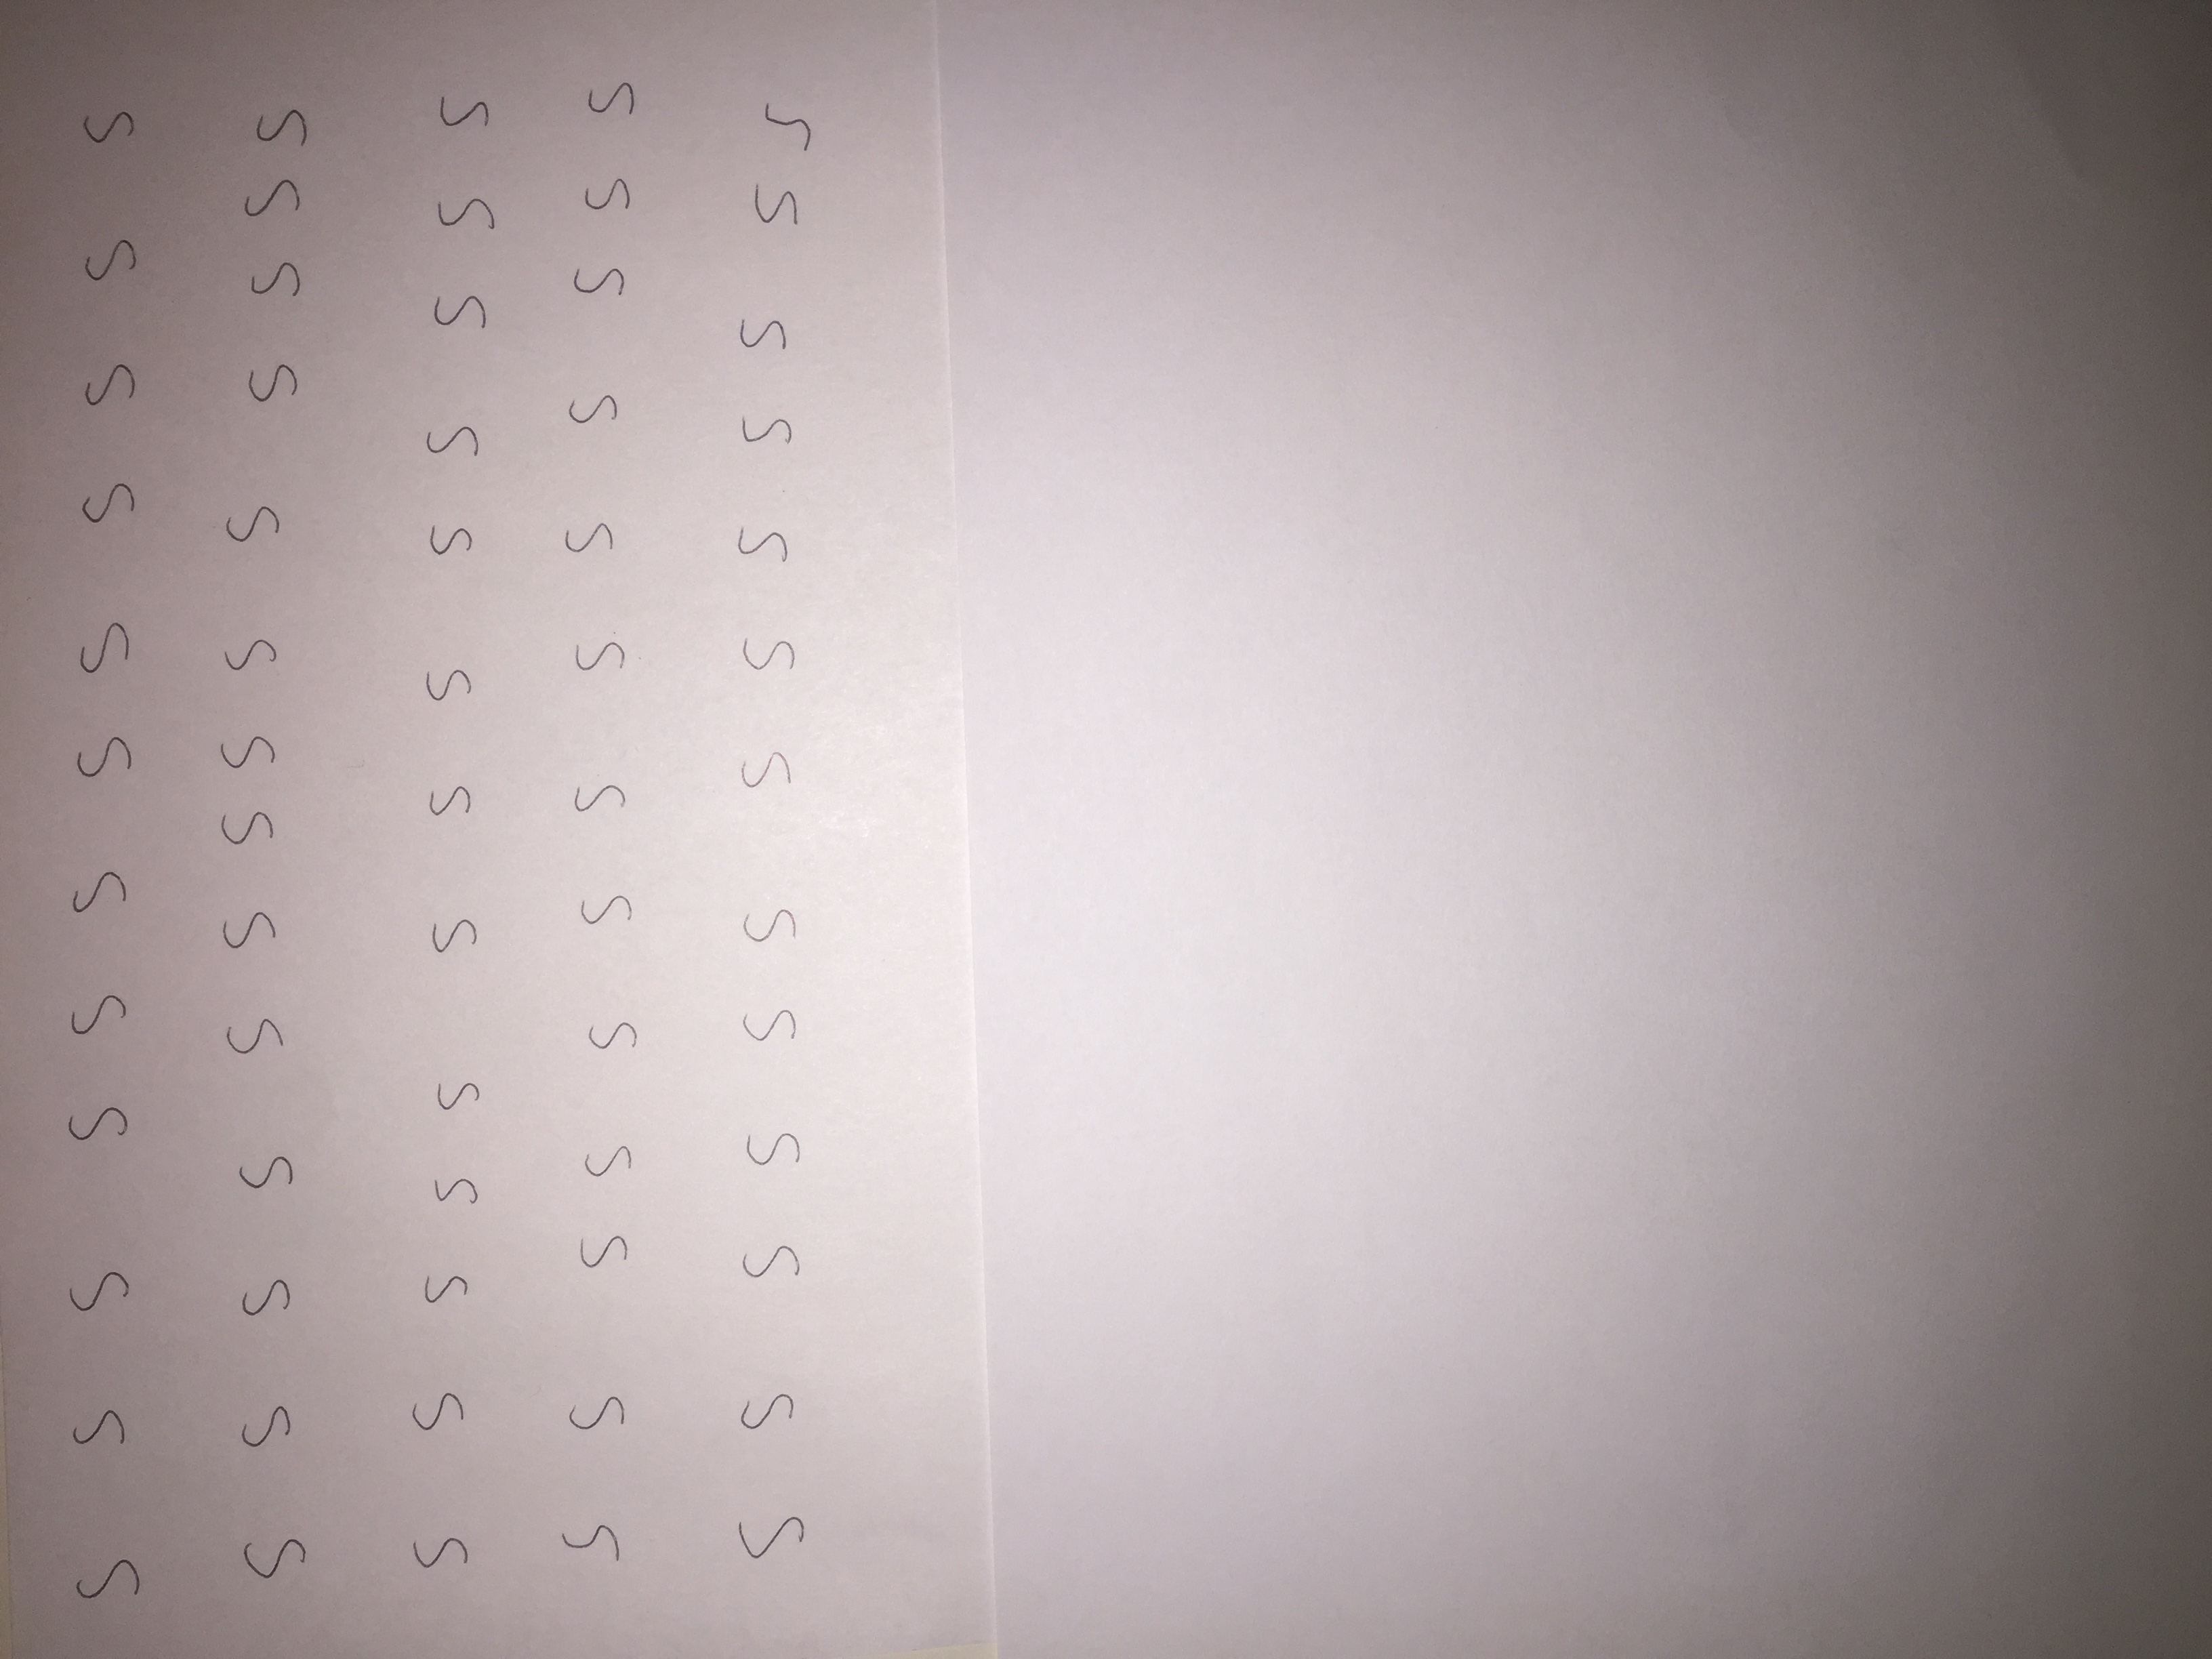 S S S S S S S S S S S S
S S S S S S S S S S S S S S
S S S S S S S S S S S S S
S S S S S S S S S S S S S
S S S S S S S S S S S S S